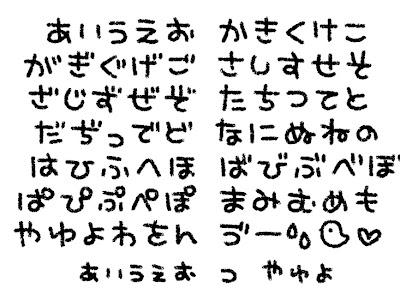 あいうえお かきくけこ
がぎぐげご さしすせそ
ざじずぜぞ たちつてと
だぢづでど なにぬねの
はひふへほ ばびぶべぼ
ぱぴぷぺぽ まみむめも
やゆよわをん ゔー♡
ぁぃぅぇぉ っ ゃゅょ